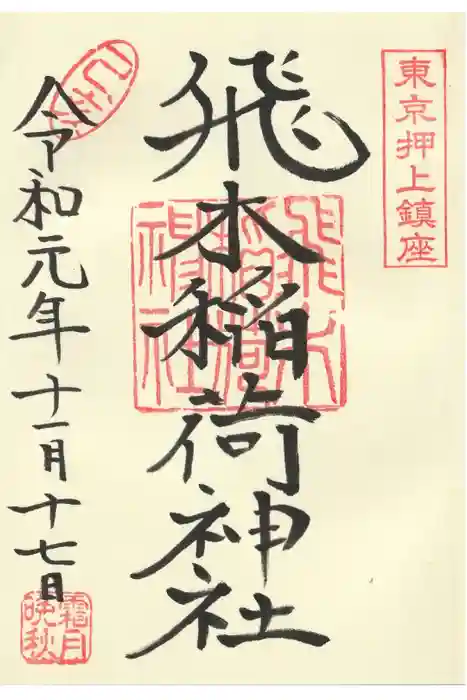 東京押上鎮座
飛木稲荷神社
令和元年十一月十七日
霜月
晩秋